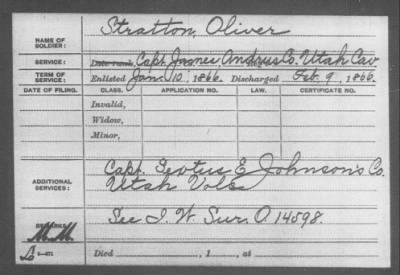 NAME OF SOLDIER: Stratton, Oliver
SERVICE: Capt. James Andrus Co. Utah Cav
TERM OF SERVICE: Enlisted Jan. 10, 1866. Discharged Feb. 9, 1866.
DATE OF FILING. CLASS. APPLICATION NO. LAW. CERTIFICATE NO.
Invalid,
Widow,
Minor,
ADDITIONAL SERVICES: Capt. E Johnson's Co.
Utah Vols
See I. W. Sur. O. 14598.
M.M.
Died , 1 , at